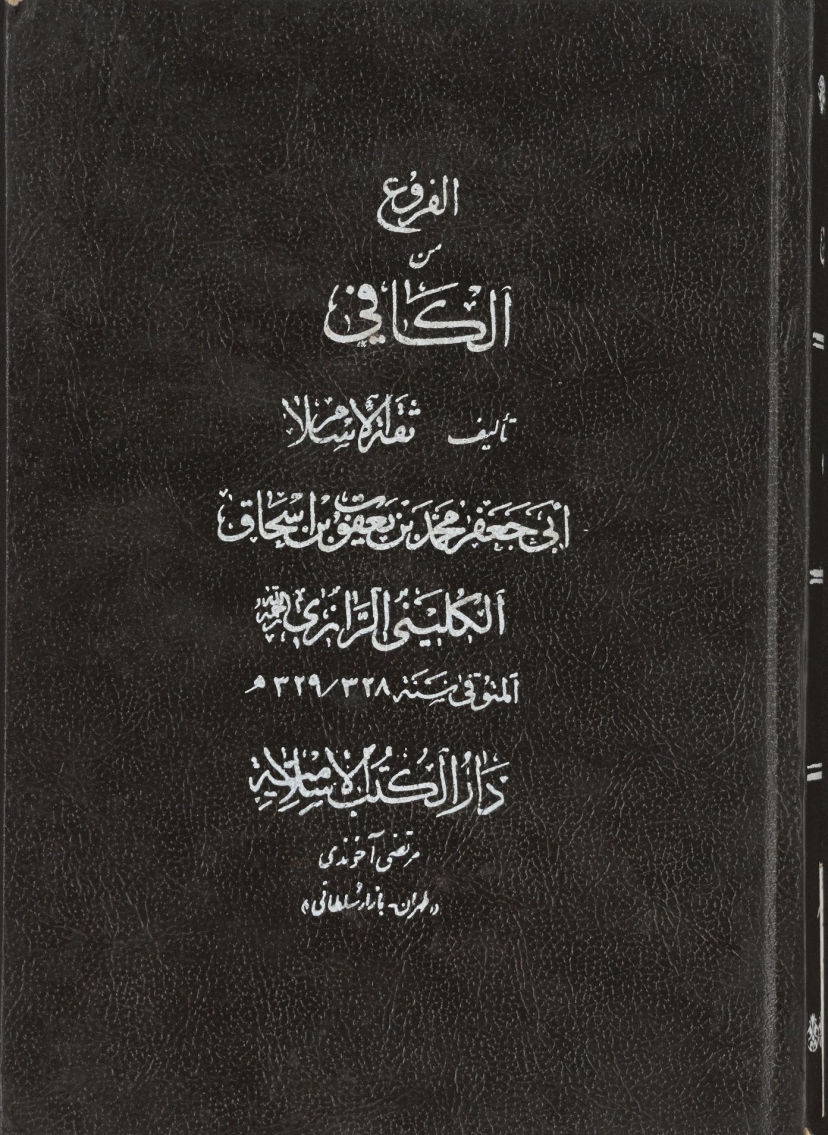 الفروع
من
الكافي
تأليف ثقة الاسلام
أبي جعفر محمد بن يعقوب بن اسحاق
الكليني الرازي رحمه الله
المتوفى سنة ٣٢٨/٣٢٩ ه
دار الكتب الاسلامية
مرتضى آخوندى
«طهران - بازار سلطانى»